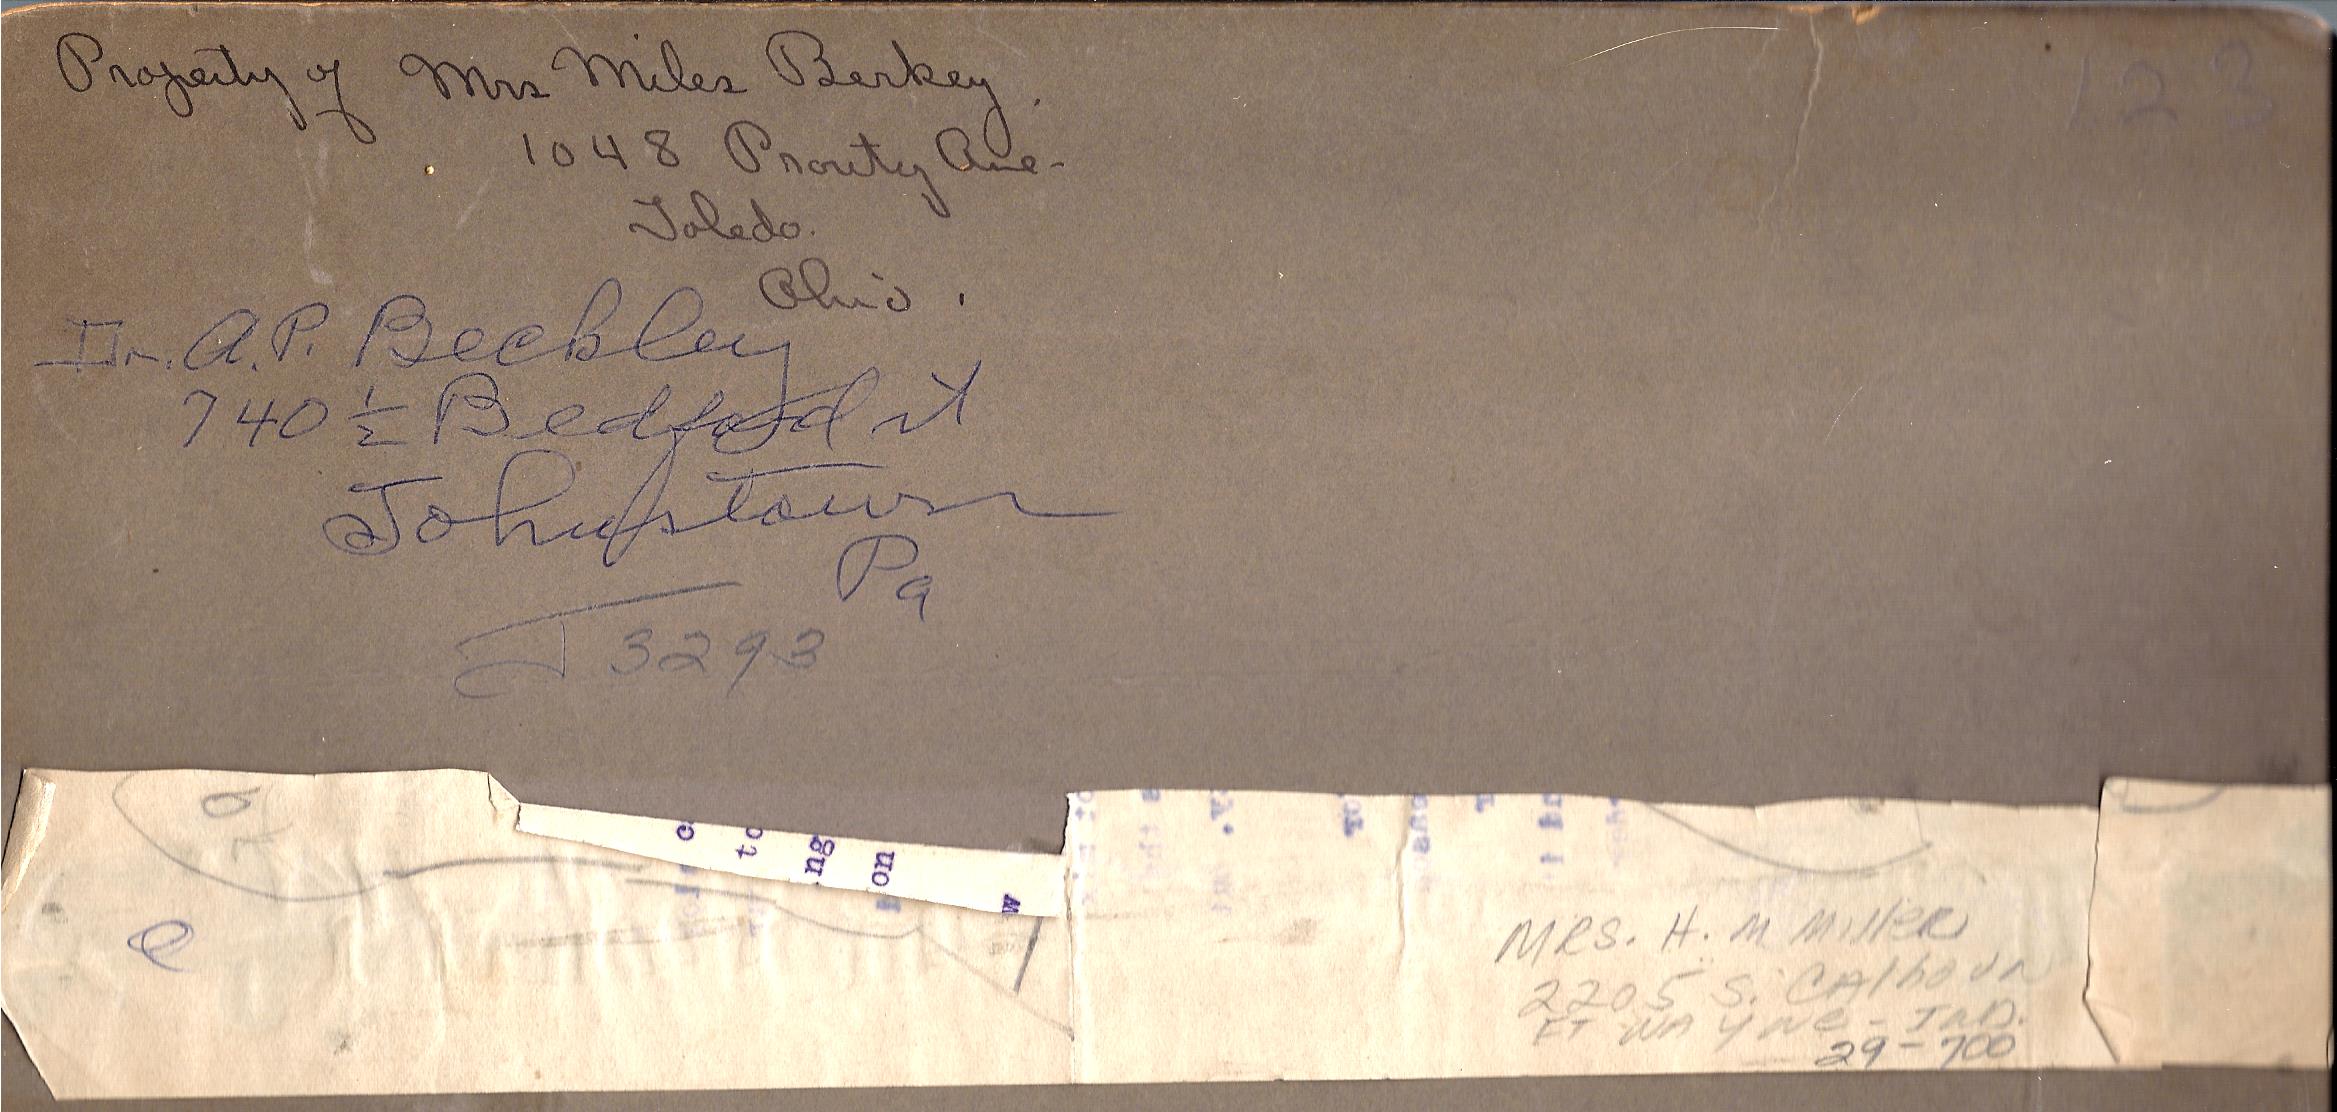 Property of Mrs Miles Berkey.
123
1048 Prouty Ave-
Toledo.
Ohio.
Dr. A.P. Beckley
740 1/2 Bedford st
Johnstown
Pa
J 3293
c
to
ng
on
w
e
MRS. H. M Miller
2205 S. CAlhoun
FT WAYNE - IND.
29-700